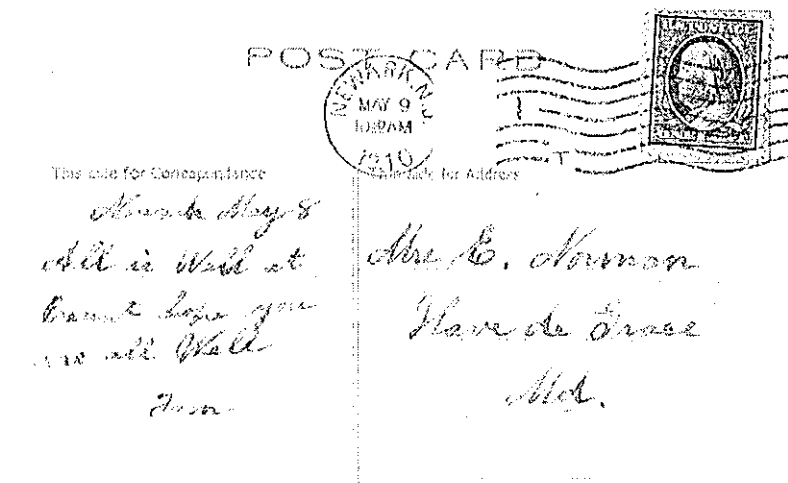 POST CARD
NEWARK, N.J.
MAY 9
1910
This side for Correspondence
This side for Address
Newark May 8
All is Well at
Present hope you
are all Well
Mrs E. Norman
Havre de Grace
Md.